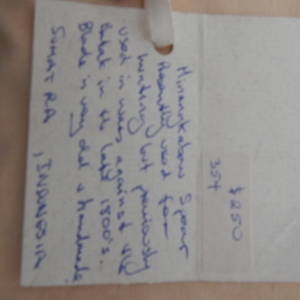 Minangkabau Spear
Recently used for
hunting but previously
used in wars against the
Batak in the late 1800's.
Blade is very old & handmade
SUMATRA, INDONESIA
354
$250